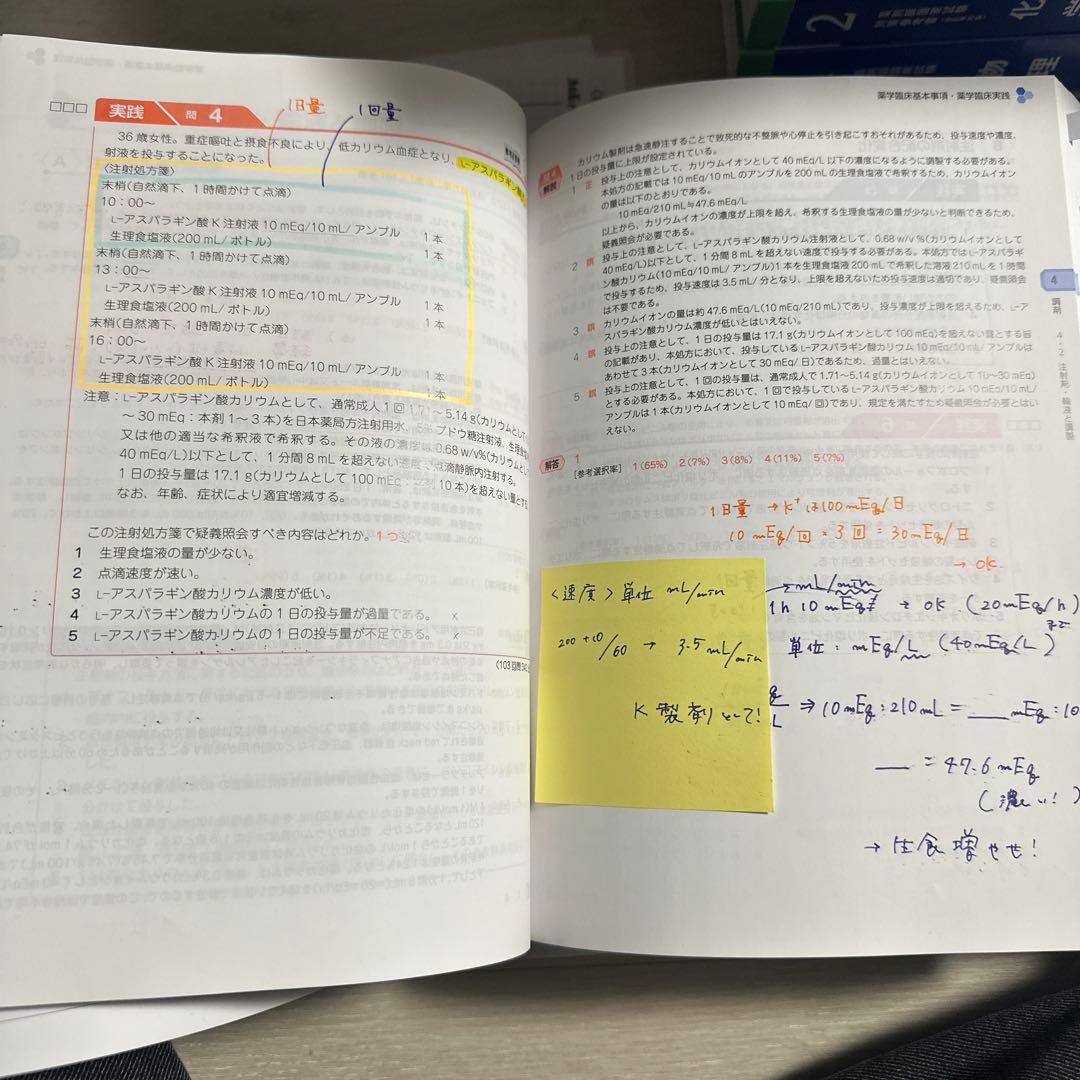 実践 問 4
1日量
1回量
36歳女性。重症嘔吐と摂食不良により、低カリウム血症となり、L-アスパラギン酸
射液を投与することになった。
〈注射処方箋〉
末梢(自然滴下、1時間かけて点滴)
10:00〜
L-アスパラギン酸K注射液 10 mEq/10 mL/アンプル 1本
生理食塩液(200 mL/ボトル) 1本
末梢(自然滴下、1時間かけて点滴)
13:00〜
L-アスパラギン酸K注射液 10 mEq/10 mL/アンプル 1本
生理食塩液(200 mL/ボトル) 1本
末梢(自然滴下、1時間かけて点滴)
16:00〜
L-アスパラギン酸K注射液 10 mEq/10 mL/アンプル 1本
生理食塩液(200 mL/ボトル) 1本
注意:L-アスパラギン酸カリウムとして、通常成人1回1.71〜5.14 g(カリウムとして
〜30 mEq:本剤1〜3本)を日本薬局方注射用水、5%ブドウ糖注射液、生理食塩
又は他の適当な希釈液で希釈する。その液の濃度は0.68 w/v%(カリウムとし
40 mEq/L)以下として、1分間8 mLを超えない速度で点滴静脈内注射する。
1日の投与量は17.1 g(カリウムとして100 mEq:本剤10本)を超えない量とす
なお、年齢、症状により適宜増減する。
この注射処方箋で疑義照会すべき内容はどれか。1つ
1 生理食塩液の量が少ない。
2 点滴速度が速い。
3 L-アスパラギン酸カリウム濃度が低い。
4 L-アスパラギン酸カリウムの1日の投与量が過量である。 x
5 L-アスパラギン酸カリウムの1日の投与量が不足である。 x
薬学臨床基本事項・薬学臨床実践
解説
カリウム製剤は急速静注することで致死的な不整脈や心停止を引き起こすおそれがあるため、投与速度や濃度、
1日の投与量に上限が設定されている。
1 正 投与上の注意として、カリウムイオンとして40 mEq/L以下の濃度になるように調製する必要がある。
本処方の記載では10 mEq/10 mLのアンプルを200 mLの生理食塩液で希釈するため、カリウムイオン
の量は以下のとおりである。
10 mEq/210 mL≒47.6 mEq/L
以上から、カリウムイオンの濃度が上限を超え、希釈する生理食塩液の量が少ないと判断できるため、
疑義照会が必要である。
2 誤 投与上の注意として、L-アスパラギン酸カリウム注射液として、0.68 w/v%(カリウムイオンとして
40 mEq/L)以下として、1分間8 mLを超えない速度で投与する必要がある。本処方ではL-アスパラギ
ン酸カリウム(10 mEq/10 mL/アンプル)1本を生理食塩液200 mLで希釈した溶液210 mLを1時間
で投与するため、投与速度は3.5 mL/分となり、上限を超えないため投与速度は適切であり、疑義照会
は不要である。
3 誤 カリウムイオンの量は約47.6 mEq/L(10 mEq/210 mL)であり、投与濃度が上限を超えるため、L-ア
スパラギン酸カリウム濃度が低いとはいえない。
4 誤 投与上の注意として、1日の投与量は17.1 g(カリウムイオンとして100 mEq)を超えない量とする旨
の記載があり、本処方において、投与しているL-アスパラギン酸カリウム10 mEq/10 mL/アンプルは
あわせて3本(カリウムイオンとして30 mEq/日)であるため、過量とはいえない。
5 誤 投与上の注意として、1回の投与量は、通常成人で1.71〜5.14 g(カリウムイオンとして10〜30 mEq)
とする必要がある。本処方において、1回で投与しているL-アスパラギン酸カリウム10 mEq/10 mL/
アンプルは1本(カリウムイオンとして10 mEq/回)であり、規定を満たすため疑義照会が必要とはい
えない。
解答 1
[参考選択率] 1(65%) 2(7%) 3(8%) 4(11%) 5(7%)
4
調剤
1日量 → K⁺は100mEq/日
10 mEq/回 × 3回 = 30mEq/日
→ OK.
〈速度〉単位 mL/min
200+10/60 → 3.5 mL/min
K製剤として!
→ mL/min
1h 10mEq → OK (20mEq/h)
単位:mEq/L (40mEq/L)
⇒ 10mEq:210mL = ＿mEq:10
＿ = 47.6mEq
(濃い!)
→ 生食増やせ!